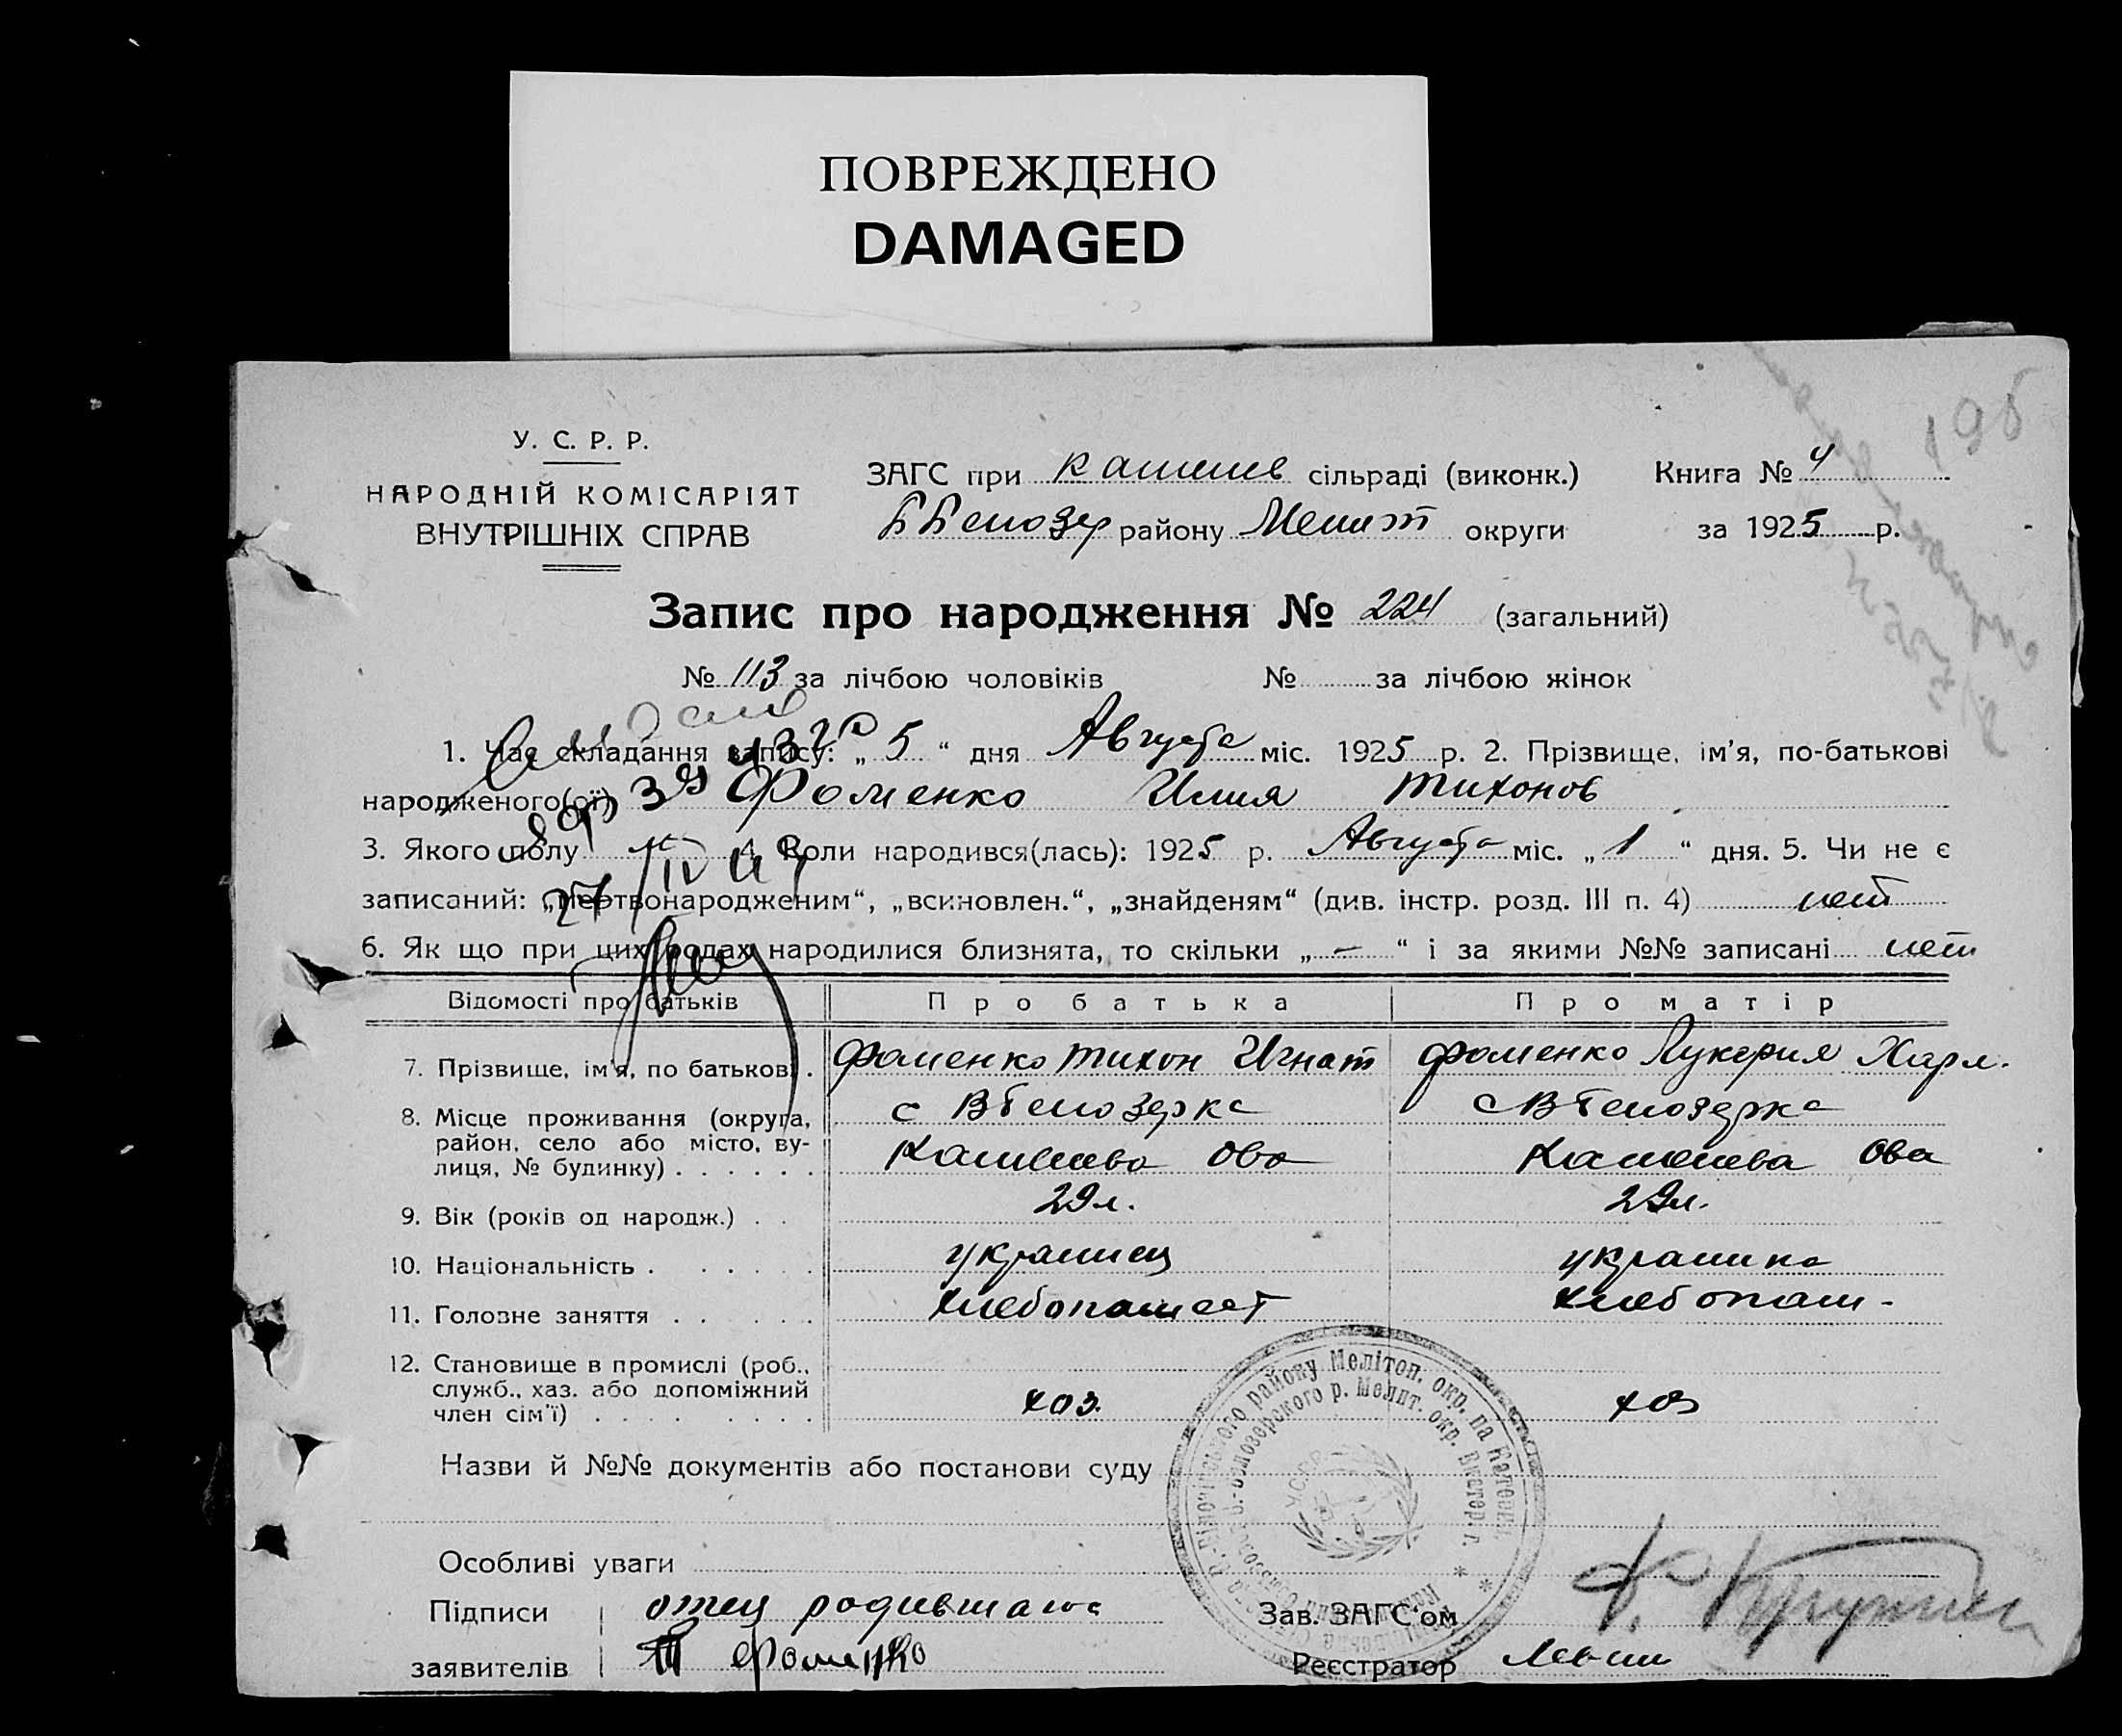 ПОВРЕЖДЕНО
DAMAGED
195
У. С. Р. Р.
НАРОДНІЙ КОМІСАРІЯТ
ВНУТРІШНІХ СПРАВ
ЗАГС при сільраді (виконк.) Книга № 4
ББелозер району Мелит округи за 1925 р.
Запис про народження № 224 (загальний)
№ 113 за лічбою чоловіків № за лічбою жінок
1. Час складання запису: „ 5 “ дня Августа міс. 1925 р. 2. Прізвище, ім'я, по-батькові
народженого(ої) Фоменко Илия Тихонов
3. Якого полу м 4. Коли народився(лась): 1925 р. Августа міс. „ 1 “ дня. 5. Чи не є
записаний: „мертвонародженим“, „всиновлен.“, „знайденям“ (див. інстр. розд. III п. 4) нет
6. Як що при цих родах народилися близнята, то скільки „ – “ і за якими №№ записані нет
Відомості про батьків Про батька Про матір
7. Прізвище, ім'я, по батькові . Фоменко Тихон Игнат Фоменко Лукерия Харл.
8. Місце проживання (округа, с ВБелозерка с ВБелозерка
район, село або місто, ву-
лиця, № будинку) . . . . . . ова ова
9. Вік (років од народж.) . . 29 л. 29 л.
10. Національність . . . . . украинец украинка
11. Головне заняття . . . . . хлебопашест хлебопаш-
12. Становище в промислі (роб.,
служб., хаз. або допоміжний
член сім'ї) . . . . . . . . хоз. хоз
Назви й №№ документів або постанови суду
Особливі уваги
Підписи отец родившагос Зав. ЗАГС'ом
заявителів Т Фоменко Реєстратор
27/IV 49
району Мелітоп. окр. на Катерин.
елозерского р. Мелит. окр. Екатер. г.
УСРР